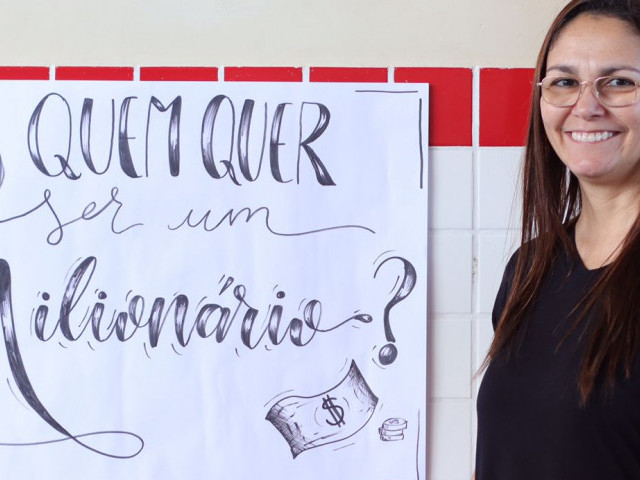 QUEM QUER
ser um
Milionário?
$